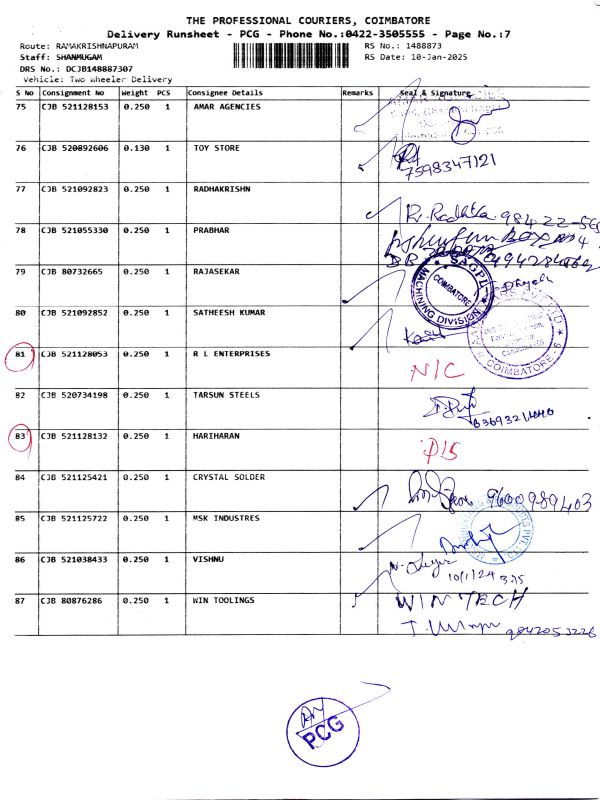 THE PROFESSIONAL COURIERS, COIMBATORE
Delivery Runsheet - PCG - Phone No.:0422-3505555 - Page No.:7
Route: RAMAKRISHNAPURAM RS No.: 1488873
Staff: SHANMUGAM RS Date: 10-Jan-2025
DRS No.: DCJB148887307
Vehicle: Two Wheeler Delivery
S No Consignment No Weight PCS Consignee Details Remarks Seal & Signature
75 CJB 521128153 0.250 1 AMAR AGENCIES
76 CJB 520892606 0.130 1 TOY STORE
7598347121
77 CJB 521092823 0.250 1 RADHAKRISHN
78 CJB 521055330 0.250 1 PRABHAR
79 CJB 80732665 0.250 1 RAJASEKAR
SAGPL
COIMBATORE
MACHINING DIVISION
80 CJB 521092852 0.250 1 SATHEESH KUMAR
COIMBATORE - 6
81 CJB 521128053 0.250 1 R L ENTERPRISES
N/C
82 CJB 520734198 0.250 1 TARSUN STEELS
83 CJB 521128132 0.250 1 HARIHARAN
84 CJB 521125421 0.250 1 CRYSTAL SOLDER
9600989403
85 CJB 521125722 0.250 1 MSK INDUSTRES
86 CJB 521038433 0.250 1 VISHNU
10/1/24
87 CJB 80876286 0.250 1 WIN TOOLINGS
WINTECH
9842053226
PCG